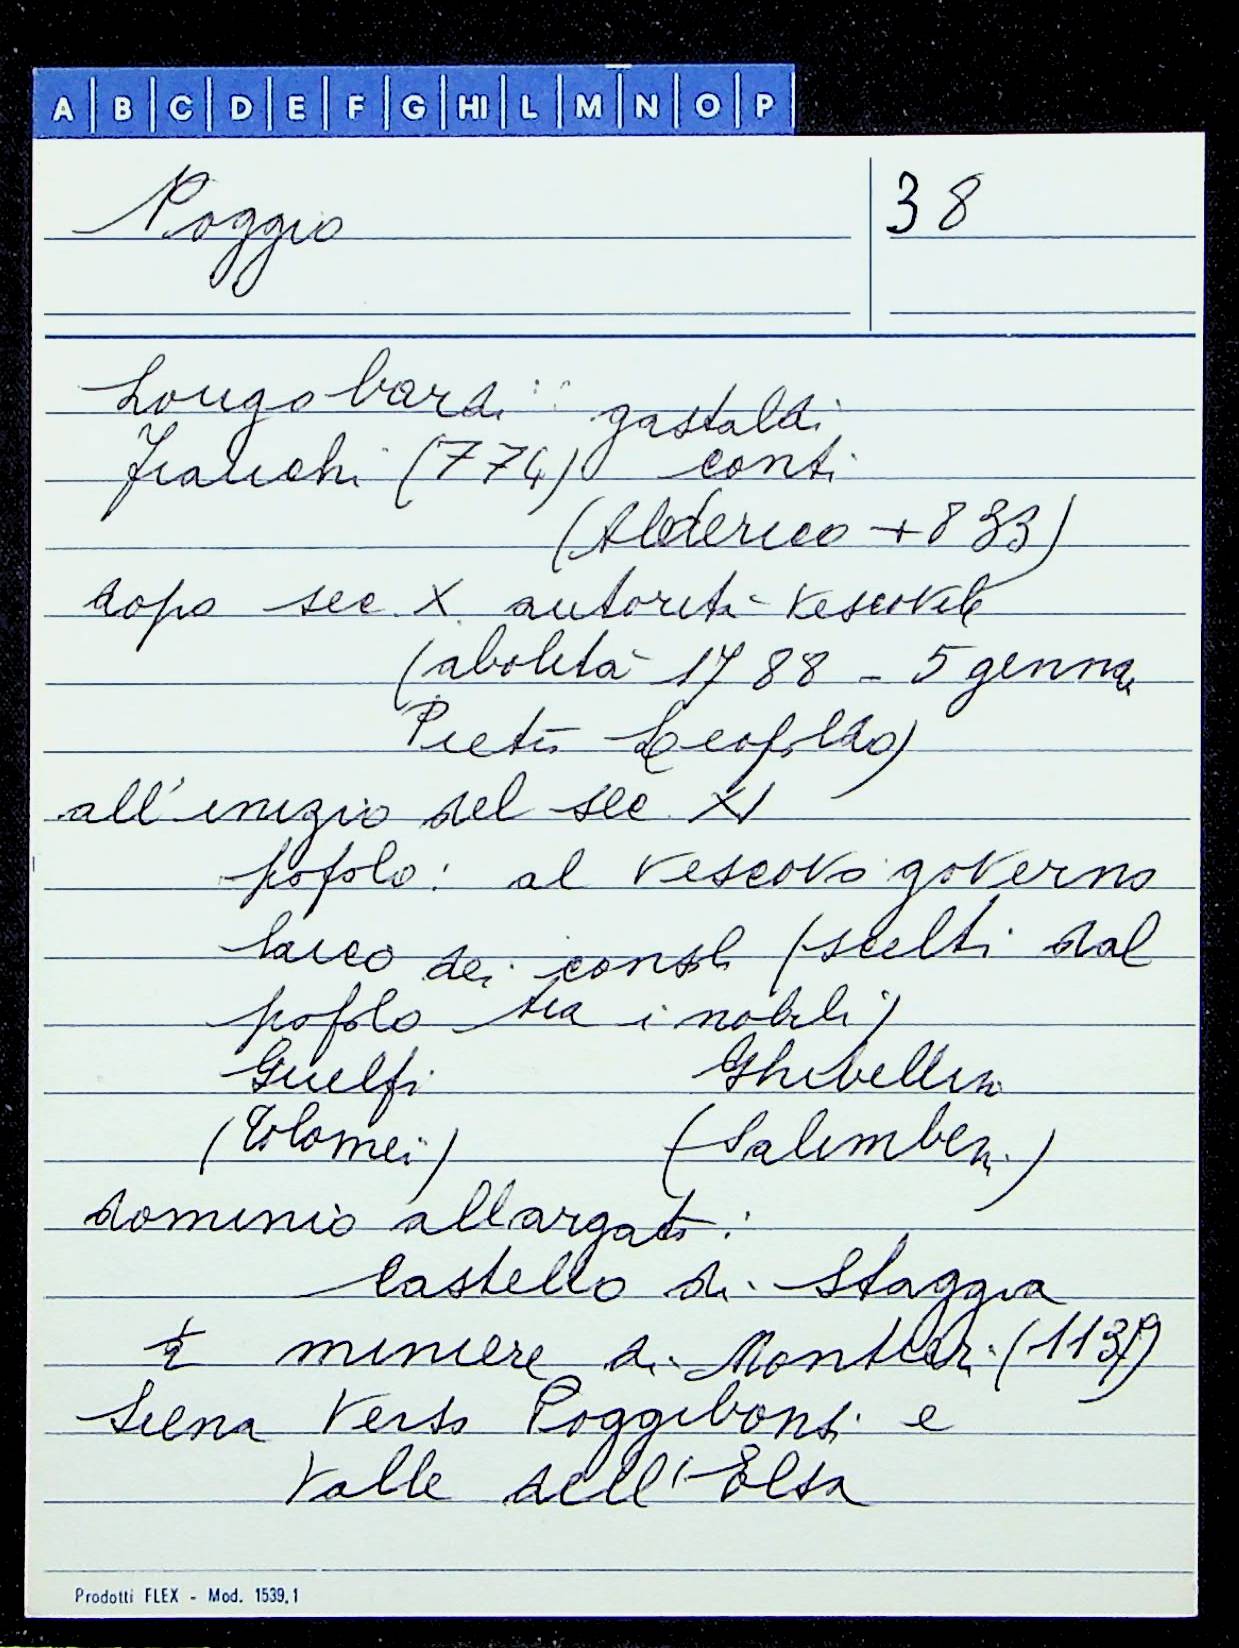 A B C D E F G HI L M N O P
Poggio 38
Longobardi gastaldi
Franchi (774) conti
(Alderico + 833)
dopo sec. X autorità vescovile
(abolita 1788 - 5 genna
Pietro Leopoldo)
all'inizio del sec XI
popolo: al vescovo governo
laico dei consoli (scelti dal
popolo tra i nobili)
Guelfi Ghibellini
(Tolomei) (Salimbeni)
dominio allargato:
Castello di Staggia
miniere di Montieri (1137)
Siena verso Poggibonsi e
Valle dell'Elsa
Prodotti FLEX - Mod. 1539,1